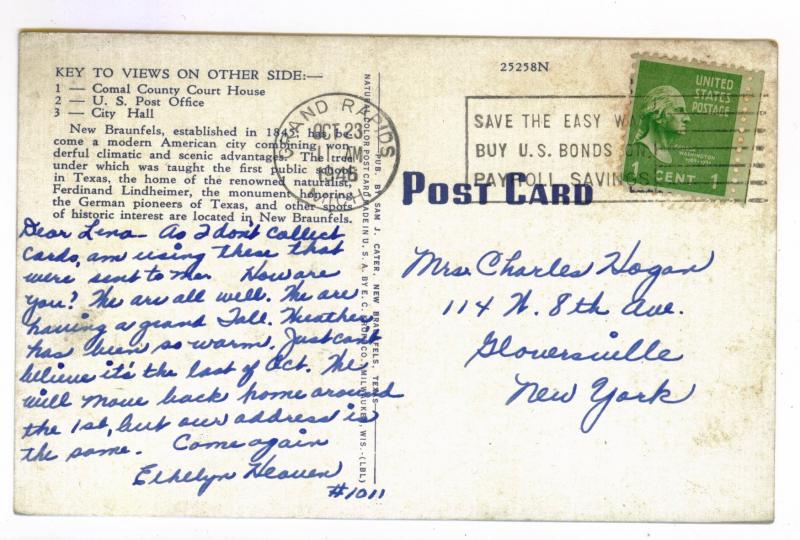 KEY TO VIEWS ON OTHER SIDE:—
1 — Comal County Court House
2 — U. S. Post Office
3 — City Hall
New Braunfels, established in 1845, has be-
come a modern American city combining won-
derful climatic and scenic advantages. The tree
under which was taught the first public school
in Texas, the home of the renowned naturalist,
Ferdinand Lindheimer, the monument honoring
the German pioneers of Texas, and other spots
of historic interest are located in New Braunfels.
Dear Lena - As I don't collect
cards, am using these that
were sent to me. How are
you? We are all well. We are
having a grand Fall. Weather
has been so warm. Just can't
believe it's the last of Oct. We
will move back home around
the 1st, but our address is
the same. Come again
Ethelyn Heaven
#1011
PUB. BY SAM J. CATER, NEW BRAUNFELS, TEXAS
NATURAL COLOR POST CARD MADE IN U. S. A. BY E. C. KROPP CO., MILWAUKEE, WIS.-(LBL)
GRAND RAPIDS
OCT 23
11 AM
1946
MICH.
25258N
SAVE THE EASY WAY
BUY U.S. BONDS
PAYROLL SAVINGS
UNITED
STATES
POSTAGE
WASHINGTON
1 CENT 1
POST CARD
Mrs. Charles Hogan
114 N. 8th Ave.
Gloversville
New York